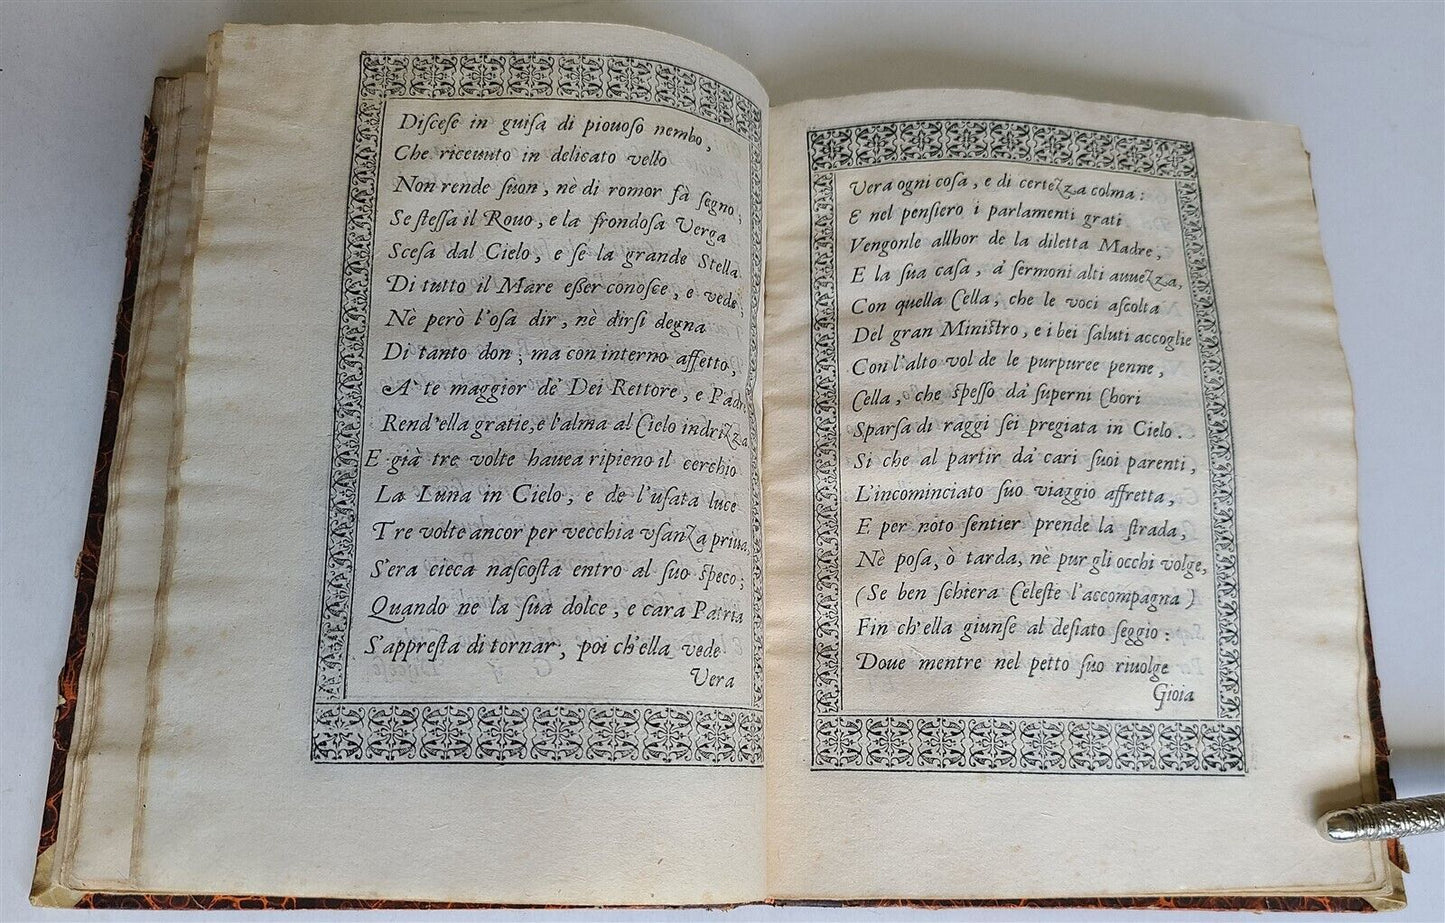 Diſceſe in guiſa di piouoſo nembo,
Che riceuuto in delicato vello
Non rende ſuon, nè di romor fà ſegno;
Se ſteſſa il Rouo, e la frondoſa Verga
Sceſa dal Cielo, e ſe la grande Stella
Di tutto il Mare eſſer conoſce, e vede;
Nè però l'oſa dir, nè dirſi degna
Di tanto don; ma con interno affetto,
A' te maggior de' Dei Rettore, e Padre
Rend'ella gratie, e l'alma al Cielo indrizza
E già tre volte hauea ripieno il cerchio
La Luna in Cielo, e de l'uſata luce
Tre volte ancor per vecchia vſanza priua,
S'era cieca naſcoſta entro al ſuo ſpeco;
Quando ne la ſua dolce, e cara Patria
S'appreſta di tornar, poi ch'ella vede
Vera
Vera ogni coſa, e di certezza colma:
E nel penſiero i parlamenti grati
Vengonle allhor de la diletta Madre,
E la ſua caſa, à ſermoni alti auuezza,
Con quella Cella, che le voci aſcolta
Del gran Miniſtro, e i bei ſaluti accoglie
Con l'alto vol de le purpuree penne,
Cella, che ſpeſſo da' ſuperni Chori
Sparſa di raggi ſei pregiata in Cielo.
Si che al partir da' cari ſuoi parenti,
L'incominciato ſuo viaggio affretta,
E per noto ſentier prende la ſtrada,
Nè poſa, ò tarda, nè pur gli occhi volge,
(Se ben ſchiera Celeſte l'accompagna)
Fin ch'ella giunſe al deſiato ſeggio:
Doue mentre nel petto ſuo riuolge
Gioia